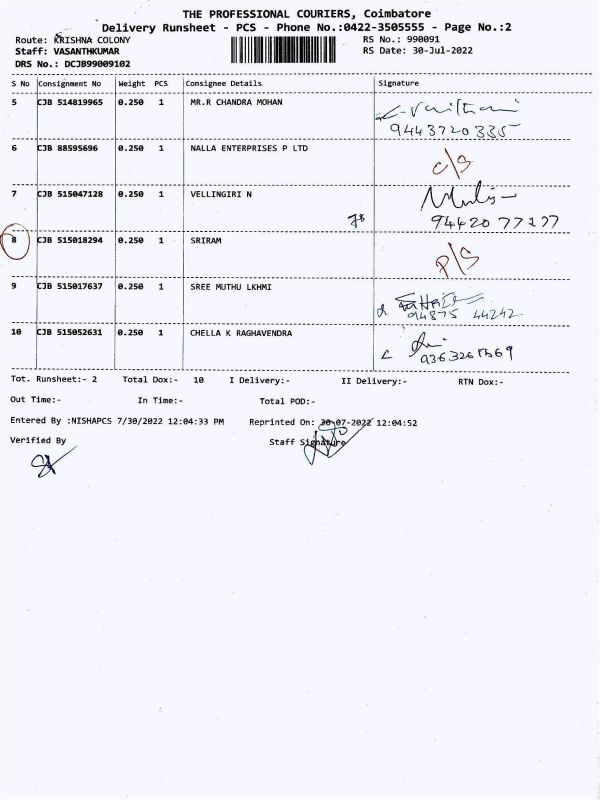 THE PROFESSIONAL COURIERS, Coimbatore
Delivery Runsheet - PCS - Phone No.:0422-3505555 - Page No.:2
Route: KRISHNA COLONY RS No.: 990091
Staff: VASANTHKUMAR RS Date: 30-Jul-2022
DRS No.: DCJB99009102
S No Consignment No Weight PCS Consignee Details Signature
5 CJB 514819965 0.250 1 MR.R CHANDRA MOHAN
9443720335
6 CJB 88595696 0.250 1 NALLA ENTERPRISES P LTD c/s
7 CJB 515047128 0.250 1 VELLINGIRI N
94420 77277
8 CJB 515018294 0.250 1 SRIRAM P/S
9 CJB 515017637 0.250 1 SREE MUTHU LKHMI
94875 44242
10 CJB 515052631 0.250 1 CHELLA K RAGHAVENDRA
Tot. Runsheet:- 2 Total Dox:- 10 I Delivery:- II Delivery:- RTN Dox:-
Out Time:- In Time:- Total POD:-
Entered By :NISHAPCS 7/30/2022 12:04:33 PM Reprinted On: 30-07-2022 12:04:52
Verified By Staff Signature